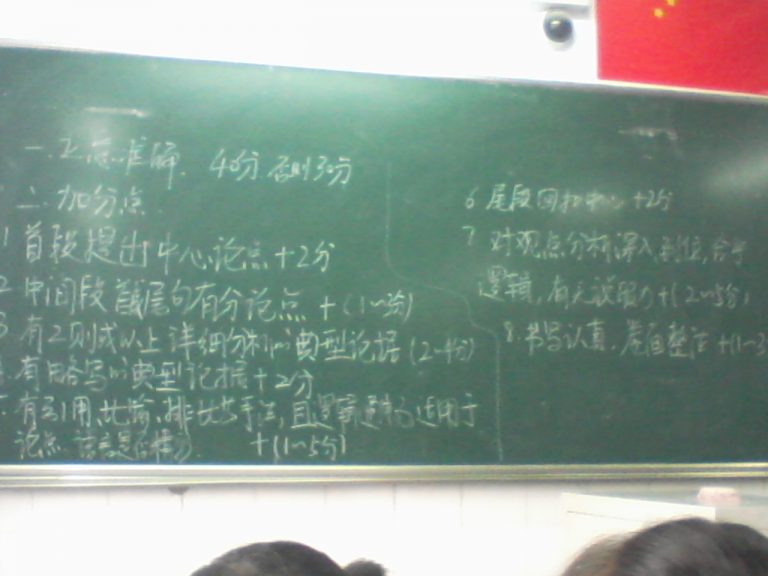 一.立意准确. 40分.否则30分
二.加分点.
1 首段提出中心论点+2分
2 中间段首尾句有分论点 +(1~3分)
3 有2则或以上详细分析的典型论据(2~4分)
4.有略写的典型论据+2分
5.有引用、比喻、排比等手法,且逻辑 适用于
论点 +(1~5分)
6 尾段回扣中心+2分
7 对观点分析深入到位,合乎
逻辑,有无说服力+(2~5分)
8.书写认真.卷面整洁 +(1~3